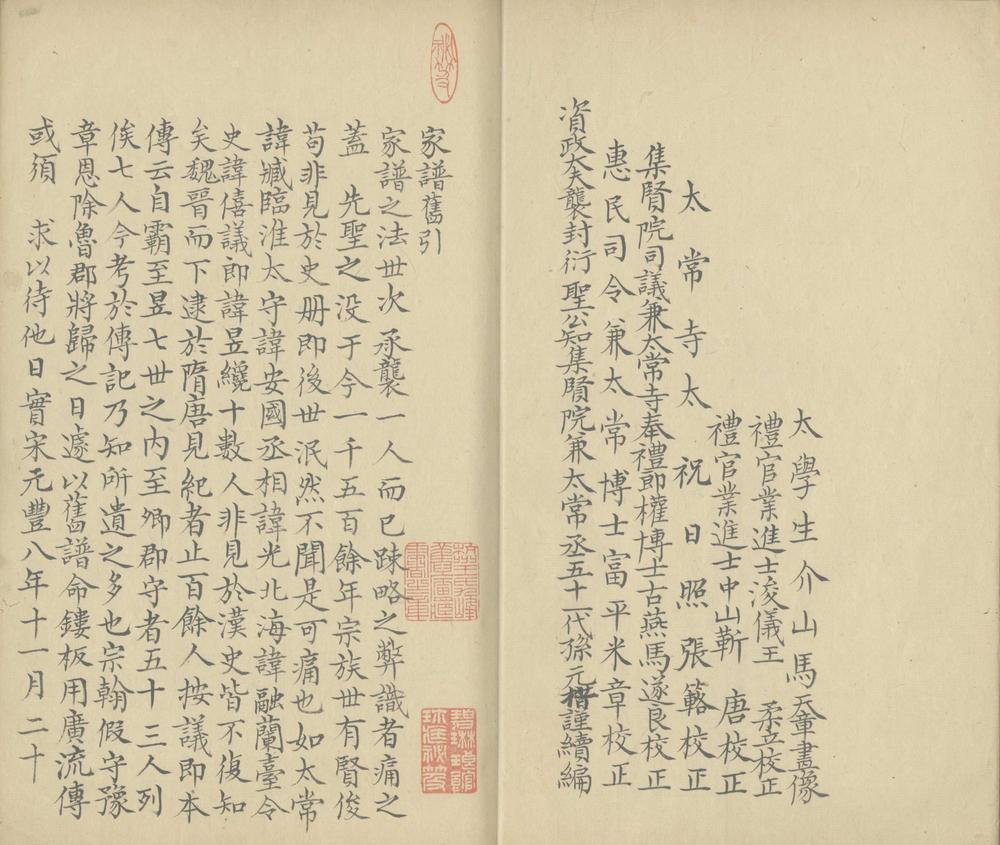 太學生介山馬天章畫像
禮官業進士浚儀王 柔立校正
禮官業進士中山靳 唐校正
太常寺太祝日照張簵校正
集賢院司議兼太常寺奉禮郎權博士古燕馬遂良校正
惠民司令兼太常博士富平米章校正
資政大夫襲封衍聖公知集賢院兼太常丞五十一代孫元措謹續編
家譜舊引
家譜之法世次承襲一人而已踈略之弊識者痛之
蓋 先聖之没于今一千五百餘年宗族世有賢俊
苟非見於史册即後世泯然不聞是可痛也如太常
諱臧臨淮太守諱安國丞相諱光北海諱融蘭臺令
史諱僖議郎諱昱纔十數人非見於漢史皆不復知
矣魏晉而下逮於隋唐見紀者止百餘人按議郎本
傳云自霸至昱七世之內至卿郡守者五十三人列
侯七人今考於傳記乃知所遺之多也宗翰假守豫
章恩除魯郡將歸之日遽以舊譜命鏤板用廣流傳
或須 求以待他日實宋元豐八年十一月二十
碧琳瑯館
珍藏秘笈